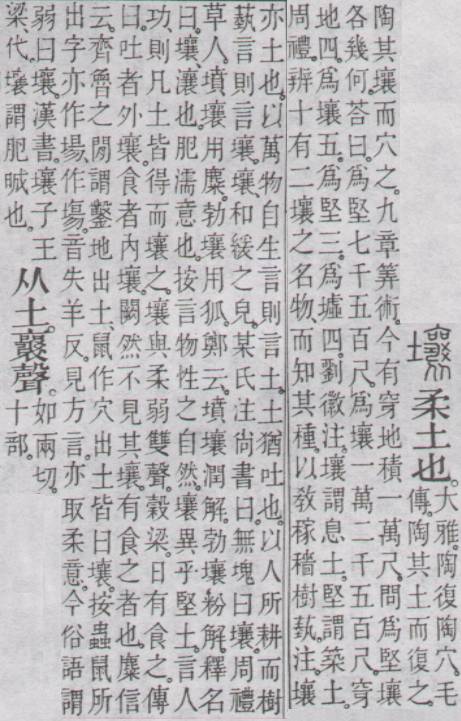 壤 柔土也。大雅。陶復陶穴。毛
傳。陶其土而復之。
陶其壤而穴之。九章筭術。今有穿地積一萬尺。問爲堅壤
各幾何。荅曰。爲堅七千五百尺。爲壤一萬二千五百尺。穿
地四。爲壤五。爲堅三。爲墟四。劉徽注。壤謂息土。堅謂築土。
周禮。辨十有二壤之名物。而知其種。以敎稼穡樹蓺。注。壤
亦土也。以萬物自生言則言土。土猶吐也。以人所耕而樹
蓺言則言壤。壤、和緩之皃。某氏注尙書曰。無塊曰壤。周禮
草人。墳壤用麋。勃壤用狐。鄭云。墳壤潤解。勃壤粉解。釋名
曰。壤、瀼也。肥濡意也。按言物性之自然。壤異乎堅土。言人
功。則凡土皆得而壤之。壤與柔弱雙聲。穀梁。日有食之。傳
曰。吐者外壤。食者內壤。闕然不見其壤。有食之者也。麋信
云。齊魯之閒謂鑿地出土、鼠作穴出土皆曰壤。按蟲鼠所
出字亦作場。作塲。音失羊反。見方言。亦取柔意。今俗語謂
弱曰壤。漢書。壤子王
梁代。壤謂肥晠也。
从土。襄聲。如兩切。
十部。